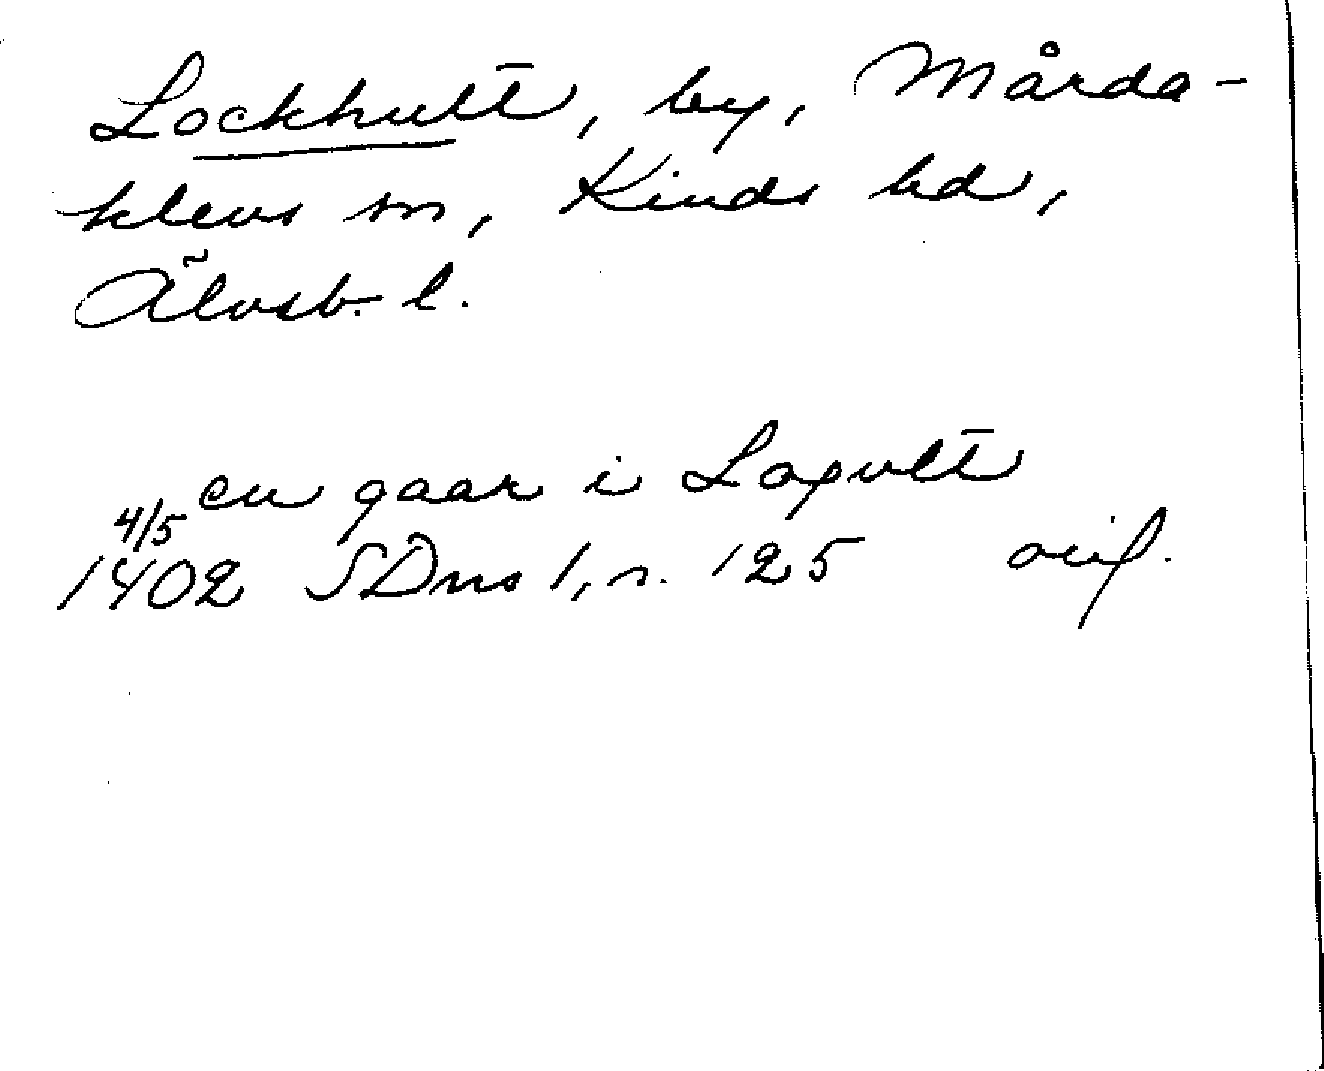 Lockhult, by, Mårda-
klevs sn, Kinds hd,
Älvsb. l.
en gaar i Logvlt
4/5
1402 SDns 1, s. 125 orig.